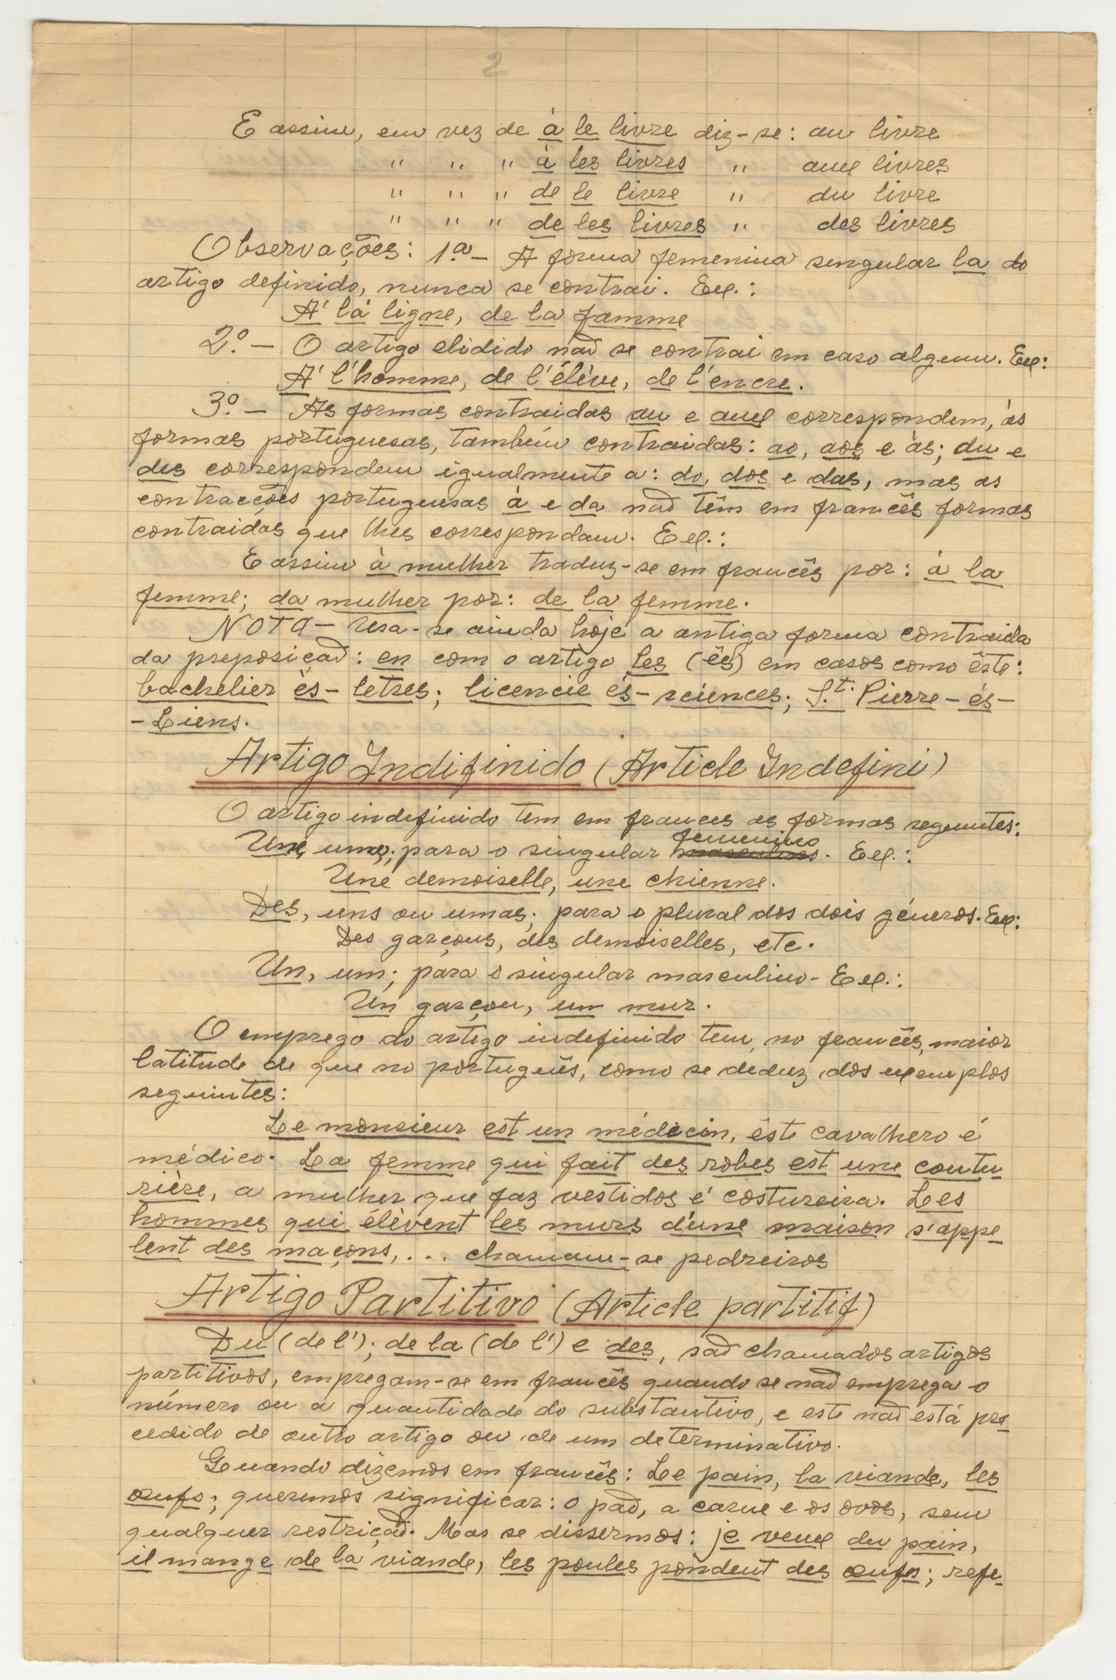 2
E assim, em vez de à le livre diz-se: au livre
" " " à les livres " aux livres
" " " de le livre " du livre
" " " de les livres " des livres
Observações: 1.ª - A forma femenina singular la do
artigo definido, nunca se contrai. Ex.:
A' la ligne, de la famme
2.º - O artigo elidido não se contrai em caso algum. Ex:
A' l'homme, de l'élève, de l'encre.
3.º - As formas contraidas au e aux correspondem, às
formas portuguesas, também contraidas: ao, aos e às; du e
des correspondem igualmente a: do, dos e das, mas as
contracções portuguesas à e da não têm em francês formas
contraidas que lhes correspondam. Ex.:
E assim à mulher traduz-se em francês por: à la
femme; da mulher por: de la femme.
NOTA - Usa-se ainda hoje a antiga forma contraida
da preposição: en com o artigo les (ès) em casos como êste:
bachelier ès-letres; licencie és-sciences; S.t Pierre-és-
-Liens.
Artigo Indifinido (Article Indefini)
O artigo indefinido tem em frances as formas seguintes:
femenino
Une, uma; para o singular masculino. Ex.:
Une demoiselle, une chienne.
Des, uns ou umas; para o plural dos dois géneros. Ex:
Des garçons, des demoiselles, etc.
Un, um; para o singular masculino - Ex.:
Un garçon, um mur.
O emprego do artigo indefinido tem, no francês, maior
latitude de que no português, como se deduz dos exemplos
seguintes:
Le monsieur est un médecin, êste cavalhero é
médico. La femme qui fait des robes est une coutu-
rière, a mulher que faz vestidos é costureira. Les
hommes qui élèvent les murs d'une maison s'appe-
lent des maçons, ... chamam-se pedreiros
Artigo Partitivo (Article partitif)
Du (de l'); de la (de l') e des, são chamados artigos
partitivos, empregam-se em francês quando se não emprega o
número ou a quantidade do substantivo, e este não está pre-
cedido de outro artigo ou de um determinativo.
Quando dizemos em francês: Le pain, la viande, les
œufs; queremos significar: o pão, a carne e os ovos, sem
qualquer restrição. Mas se dissermos: je veux du pain,
il mange de la viande, les poules pondent des œufs; refe-